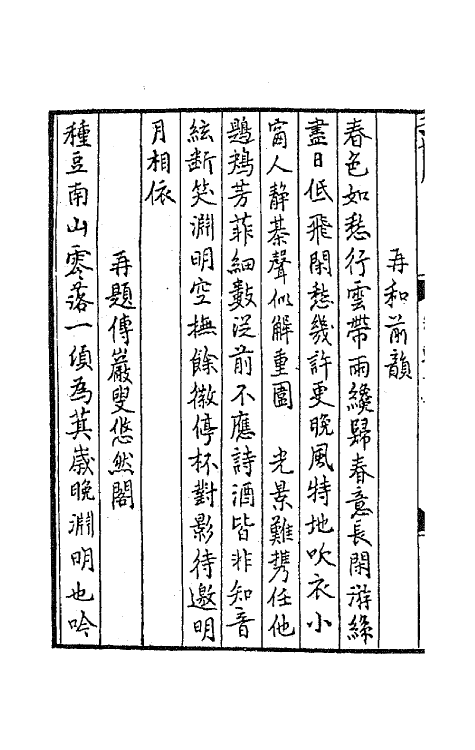 再和前韻
春色如愁行雲帶雨纔歸春意長閑游絲
盡日低飛閑愁幾許更晚風特地吹衣小
窗人靜棊聲似解重圍　光景難攜任他
鶗鴂芳菲細數從前不應詩酒皆非知音
絃斷笑淵明空撫餘徽停杯對影待邀明
月相依
再題傅巖叟悠然閣
種豆南山零落一頃為萁歲晚淵明也吟